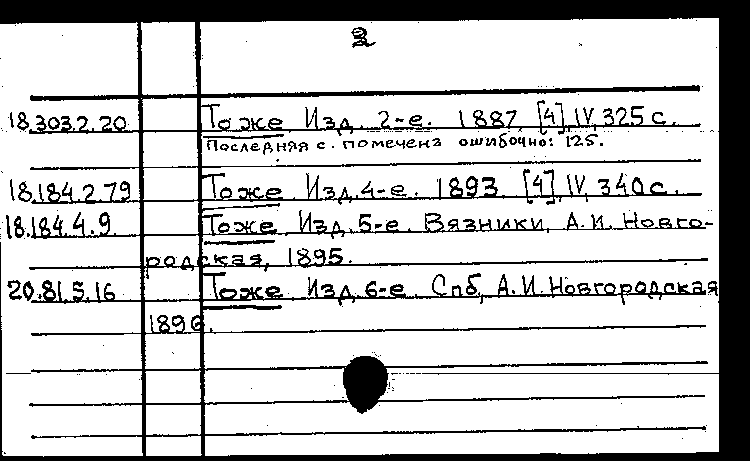 2
18.303.2.20 Тоже Изд. 2-е. 1887. [4], IV, 325 с.
Последняя с. помечена ошибочно: 125.
18.184.2.79 Тоже Изд. 4-е. 1893. [4], IV, 340 с.
18.184.4.9. Тоже. Изд. 5-е. Вязники, А.И. Новго-
родская, 1895.
20.81.5.16 Тоже Изд. 6-е. Спб, А.И. Новгородская
1896.